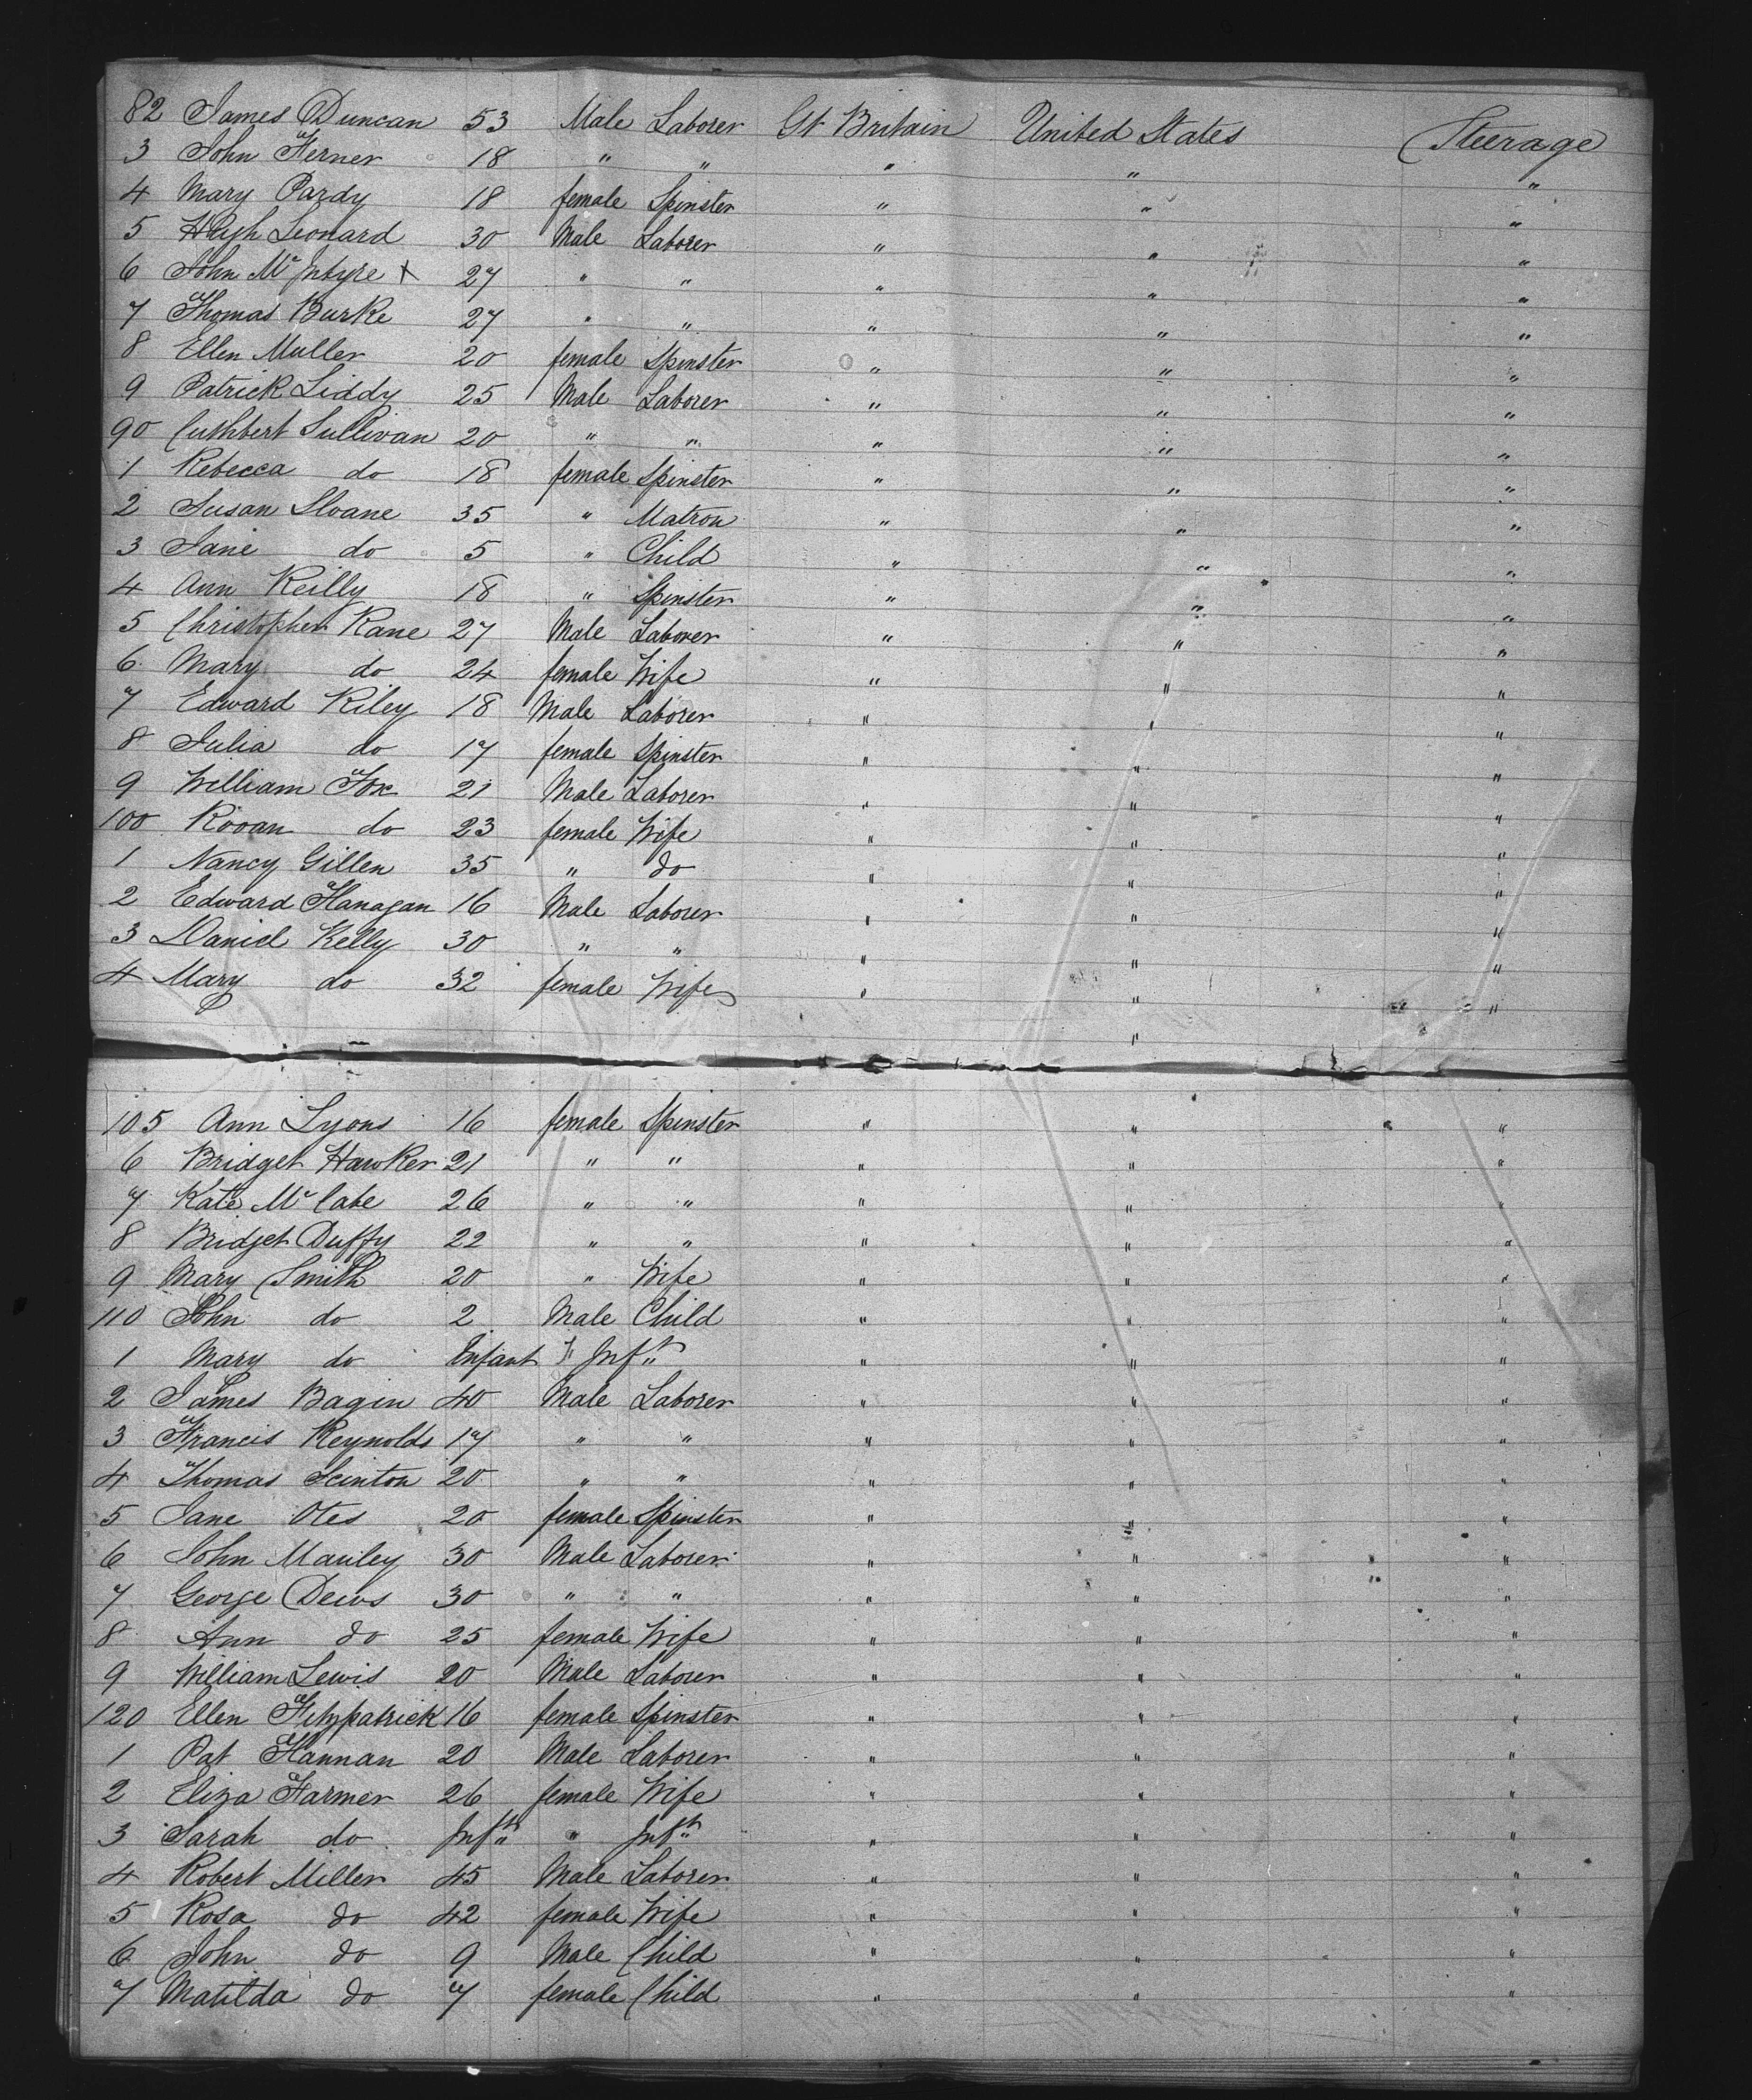 82 James Duncan 53 Male Laborer Gt Britain United States Steerage
3 John Ferner 18 " " " " "
4 Mary Pardy 18 female Spinster " " "
5 Hugh Leonard 30 Male Laborer " " "
6 John McIntyre X 27 " " " " "
7 Thomas Burke 27 " " " " "
8 Ellen Muller 20 female Spinster " " "
9 Patrick Liddy 25 Male Laborer " " "
90 Cuthbert Sullivan 20 " " " " "
1 Rebecca do 18 female Spinster " " "
2 Susan Sloane 35 " Matron " " "
3 Jane do 5 " Child " " "
4 Ann Reilly 18 " Spinster " " "
5 Christopher Kane 27 Male Laborer " " "
6 Mary do 24 female Wife " " "
7 Edward Riley 18 Male Laborer " " "
8 Julia do 17 female Spinster " " "
9 William Fox 21 Male Laborer " " "
100 do 23 female Wife " " "
1 Nancy Gillen 35 " do " " "
2 Edward Flanagan 16 Male Laborer " " "
3 Daniel Kelly 30 " " " " "
4 Mary do 32 female Wife " " "
"
105 Ann Lyons 16 female Spinster " " "
6 Bridget Hawker 21 " " " " "
7 Kate McCabe 26 " " " " "
8 Bridget Duffy 22 " " " " "
9 Mary Smith 20 " Wife " " "
110 John do 2 Male Child " " "
1 Mary do Infant " Inft " " "
2 James Bagin 40 Male Laborer " " "
3 Francis Reynolds 17 " " " " "
4 Thomas Scinton 20 " " " " "
5 Jane Otes 20 female Spinster " " "
6 John Manley 30 Male Laborer " " "
7 George Dews 30 " " " " "
8 Ann do 25 female Wife " " "
9 William Lewis 20 Male Laborer " " "
120 Ellen Fitzpatrick 16 female Spinster " " "
1 Pat Hannan 20 Male Laborer " " "
2 Eliza Farmer 26 female Wife " " "
3 Sarah do Inft " Inft " " "
4 Robert Miller 45 Male Laborer " " "
5 Rosa do 42 female Wife " " "
6 John do 9 Male Child " " "
7 Matilda do 7 female Child " " "